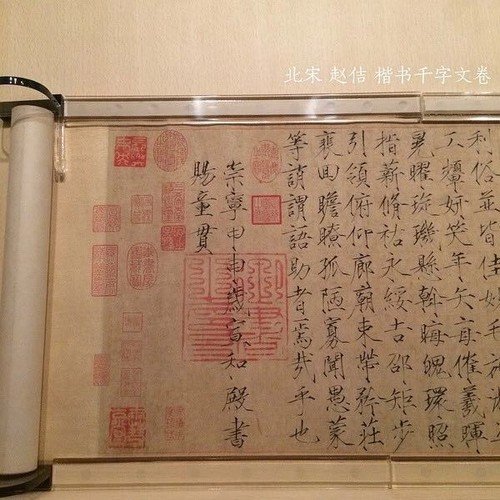 北宋 赵佶 楷书千字文卷
利俗並皆佳妙毛施淑
工顰妍笑年矢每催羲暉
晃曜琁璣懸斡晦魄環照
指薪脩祜永綏吉邵矩步
引領俯仰廊廟束帶矜莊
裵回瞻眺孤陋寡聞愚蒙
等誚謂語助者焉哉乎也
崇寧甲申歲宣和殿書
賜童貫